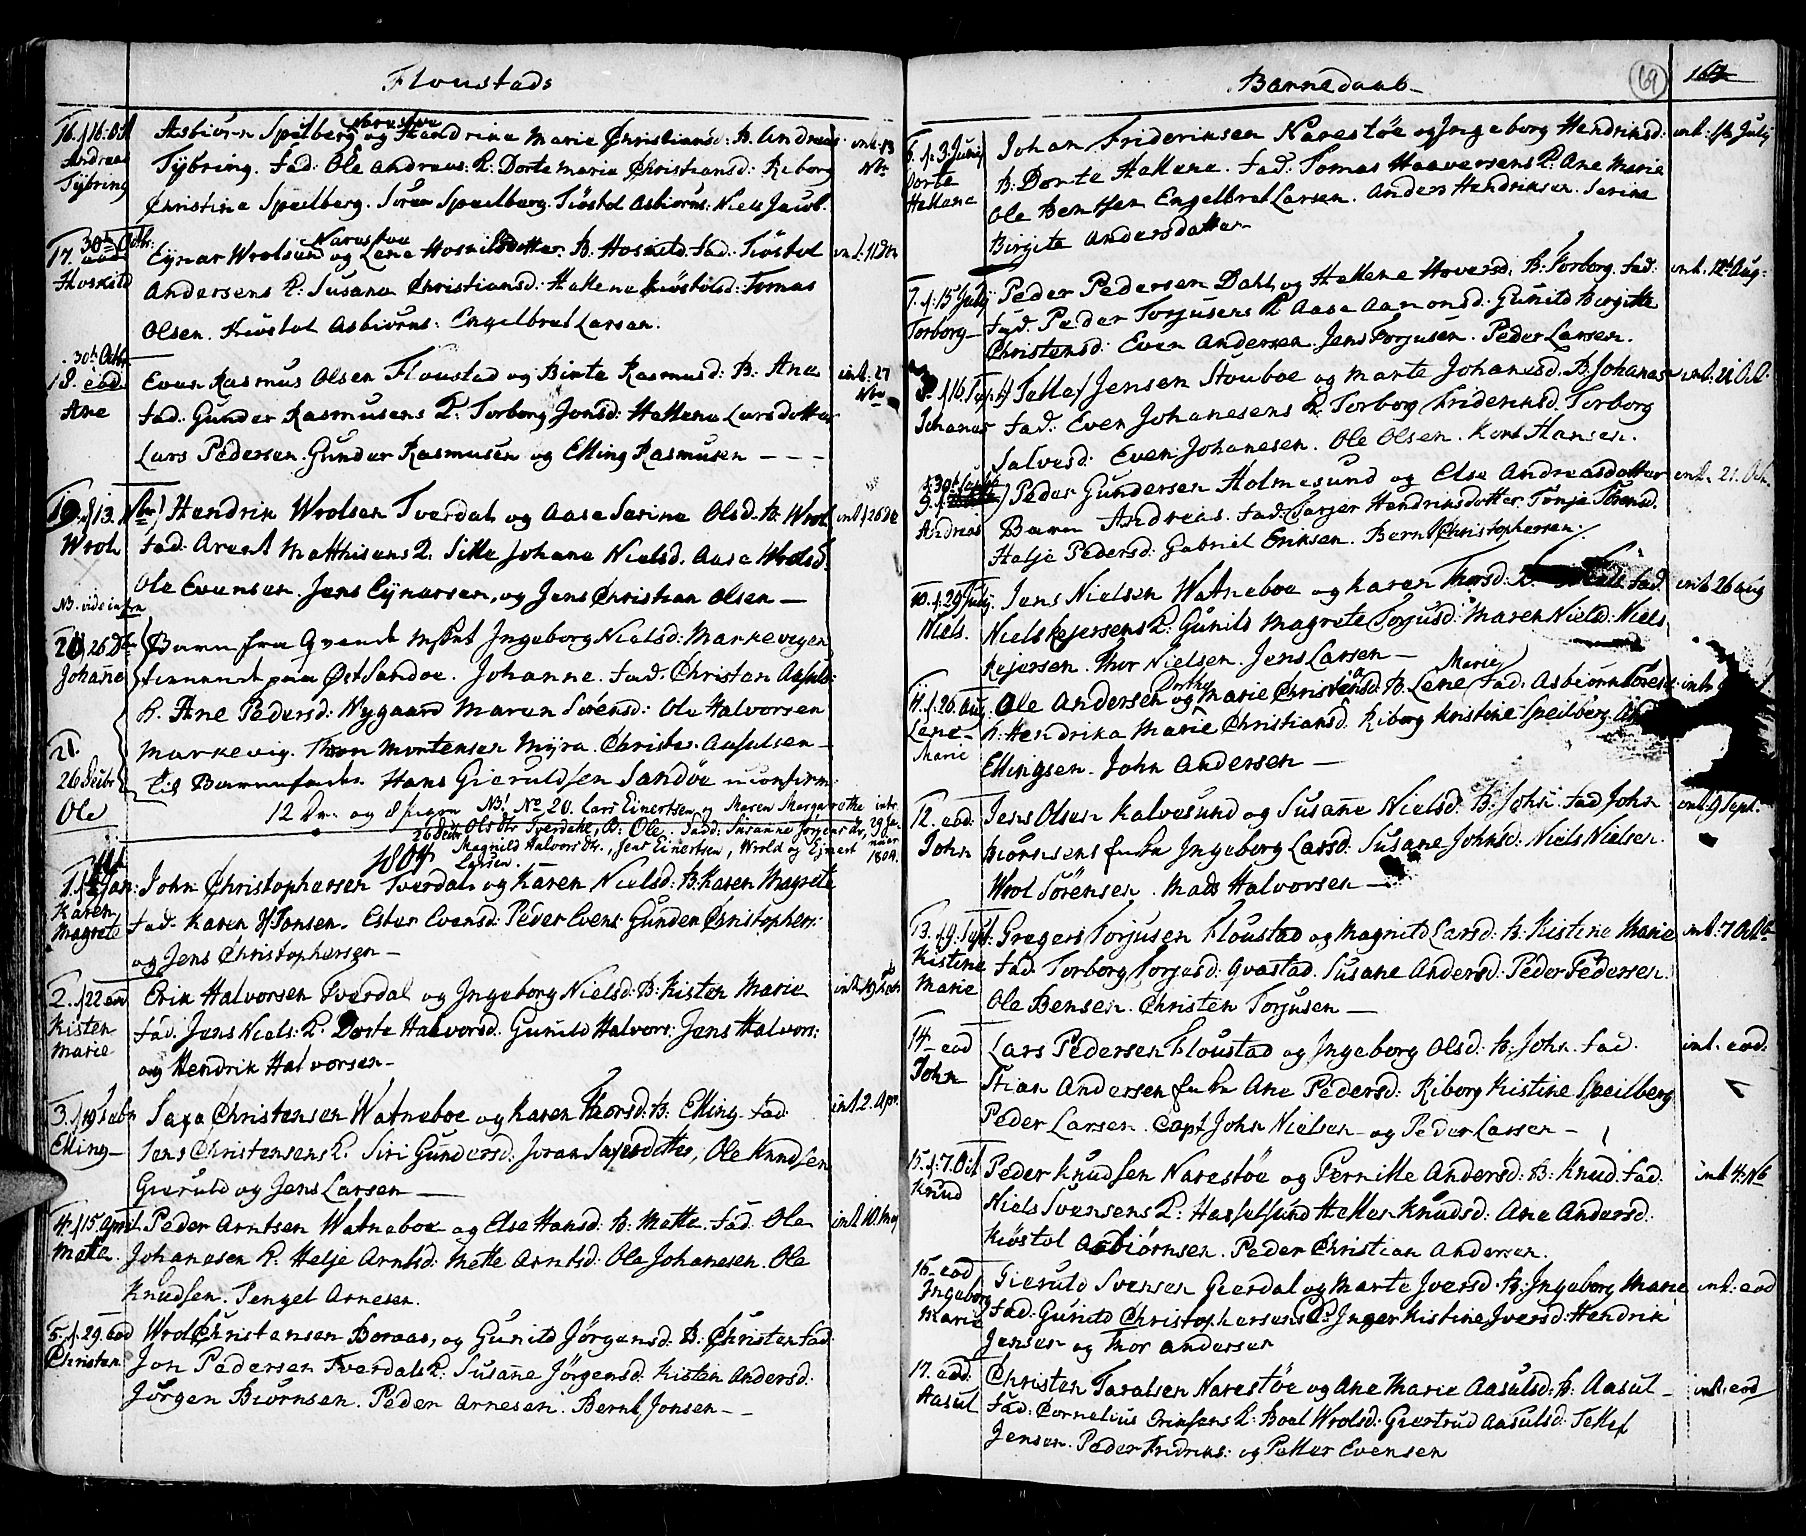 Floustads
16. f 16. Oct
Andreas
Tÿbring
Asbiörn Speilberg Narestøe og Hendrina Marie Christiansd: B. Andreas
Tÿbring. Fad: Ole Andreas: K. Dorte Maria Christiansd: Riborg
Christine Speilberg. Sören Speilberg. Tiöstol Asbiörns: Niels Jacob.
int. 13 Nbr
17. 30te Octbr: eod
Hoskild
Eynar Wrolsen Narestøe og Lene Hoskildsdotter. B. Hoskild. Fad: Tiöstol
Andersens K: Susana Christiansd: Hellene Kiöstolsd: Tomas
Olsen. Kiöstol Asbiörns: Engelbret Larsen.
int. 11 Dbr
18. 30te Octbr eod.
Ane
Even Rasmus Olsen Floustad og Birte Rasmusd: B. Ane
Fad: Gunder Rasmusens K. Torborg Jonsd: Hellene Larsdotter
Lars Pedersen. Gunder Rasmusen og Elling Rasmusen - - -
int. 27 Nbr
19. f 13. Nbr)
Wrol
Hendrik Wrolsen Tverdal og Aase Sarine Olsd. B. Wrol
Fad. Arent Matthisens K. Sille Johana Nielsd. Aase Wrolsd.
Ole Evensen. Jens Eynersen, og Jens Christian Olsen —
int. 26 De
NB. vide infra
20, 26 Dbr
Johañe
Barn fra Qvende Mspt Ingeborg Nielsd: Markevigen
tienende paa Øst Sandøe. Johanne. Fad. Christen Aasuls:
K. Ane Pedersd: Nygaard Maren Sörensd: Ole Halvorsen
Markevig. Thron Mortensen Myra. Christen Aasulsen —
til Barnefader Hans Gieruldsen Sandöe uconfirm:
21.
26 Decbr
Ole
NB! No 20. Lars Einertsen og Maren Margrethe
Olsdtr Tverdahl, B: Ole. Fadd: Susanne Jørgensdtr,
Magnild Halvorsdtr., Jens Einertsen, Wrold og Einert
Larsen.
intr. 29 januar 1804.
1804
1. f Jan:
Karen
Magrete
John Christophersen Tverdal og Karen Nielsd: B. Karen Magrete
Fad. Karen Jonsen. Ester Evensd: Peder Evens: Gunder Christophers:
og Jens Christophersen —
2. f 22 eod
Kisten
Marie
Erik Halvorsen Tverdal og Ingeborg Nielsd: B: Kisten Marie
Fad. Jens Niels: K. Dorte Halvorsd. Gunild Halvors: Jens Halvors:
og Hendrik Halvorsen —
int. 19 Feb
3. f 19 Febr
Elling —
Saxe Christensen Watneboe og Karen Thorsd: B. Elling. Fad.
Jens Christensens K. Siri Gundersd. Joran Saxesdotter, Ole Knudsen
Gieruld og Jens Larsen —
int. 2. Apr.
4. f 15 April
Mette.
Peder Arntsen Watneboe og Else Hansd: B. Mette. Fad. Ole
Johanesen K. Helje Arntsd: Mette Arntsd: Ole Johanesen. Ole
Knudsen. Tengel Arnesen.
int. 10. May
5. f. 29. eod
Christen
Wrol Christensen Boraas, og Gunild Jörgensd: B. Christen Fad:
Jon Pedersen Tverdals K: Susañe Jörgensd: Kisten Andersd:
Jörgen Biörnsen. Peder Arnesen. Bernt Jonsen —
Barnedaab
69
6. f. 3. Junij
Dorte
Hellene
Johan Frideriksen Narestøe og Ingeborg Hendriksd:
B: Dorte Hellene. Fad: Tomas Haaversens K: Ane Marie
Ole Bentsen Engelbret Larsen. Anders Hendriksen. Sarine
Birgite Andersdatter
int. July
7. f. 15 July
Torborg —
Peder Pedersen Dahl og Hellene Hoversd: B. Torborg. Fad:
Fad. Peder Torjusens K Aase Aamonsd: Gunild Birgitte
Christensd: Even Andersen. Jens Torjusen. Peder Larsen.
int. 12te Aug:
8. f 16. Sept
Johanes
Tellef Jensen Stouboe og Marte Johanesd: B. Johanes
Fad: Even Johanesens K. Torborg Frideriksd. Torborg
Salvesd: Even Johanesen. Ole Olsen. Kort Hansen.
int. 21. Oct.
9.
Andreas
Peder Gundersen Holmesund og Else Andreasdotter
Barn Andreas. Fad: Tarjer Hendriksdotter. Tönje Törensd.
Helje Pedersd: Gabriel Eriksen. Bernt Christophersen.
int. 21. Octr.
10. f. 29 July
Niels.
Jens Nielsen Watneboe og Karen Thorsd: Fad.
Niels Kejersens K: Gunild Magrete Torjusd: Maren Nielsd: Niels
Kejersen. Thor Nielsen. Jens Larsen —
int. 26 Aug
11. f. 26. Aug:
Lene
Marie
Ole Andersen og Dorthe Marie Christensd: B. Lene Marie Fad. Asbiörn Törens:
K. Hendrika Marie Christiansd. Riborg Kristine Speilberg.
Ellingsen. John Andersen —
int.
12. eod.
John
Jens Olsen Kalvesund og Susañe Nielsd: B. John. Fad John
Biörnsens fu Kn Ingeborg Larsd: Susane Johnsd: Niels Nielsen.
Wrol Sörensen. Mads Halvorsen —
int. 9 Sept.
13. f 9. Sept:
Kistine
Marie
Gregers Torjusen Floustad og Magnild Larsd: B. Kistine Marie
Fad. Torborg Torjusd: Qvastad. Susane Andersd: Peder Pedersen.
Ole Bensen. Christen Torjusen —
int. 7 Octb
14. eod
John
Lars Pedersen Floustad og Ingeborg Olsd: B. John. Fad.
Stian Andersen fu Kn Ane Pedersd: Riborg Kistine Speilberg
Peder Larsen. Capt John Nielsen og Peder Larsen —
int. eod.
15. f. 7. Oct
Knud
Peder Knudsen Narestöe og Pernille Andersd: B: Knud. Fad.
Niels Svensens K: Hasselsund Hellen Knudsd: Ane Andersd.
Kiöstol Asbiörnsen. Peder Christian Andersen.
int. 4. Nb
16. eod
Ingeborg
Marie
Gieruld Svensen Gierdal og Marte Iversd. B: Ingeborg Marie
Fad: Gunild Christophersens K. Inger Kistine Iversd: Hendrik
Jensen og Thor Andersen
int. eod
17. eod.
Aasul
Christen Taralsen Narestöe og Ane Marie Aasulsd: B: Aasul —
Fad: Cornelius Eriksens K: Boel Wrolsd: Giertrud Aasulsd: Tellef
Jensen. Peder Fridriks: og Petter Evensen
int. eod